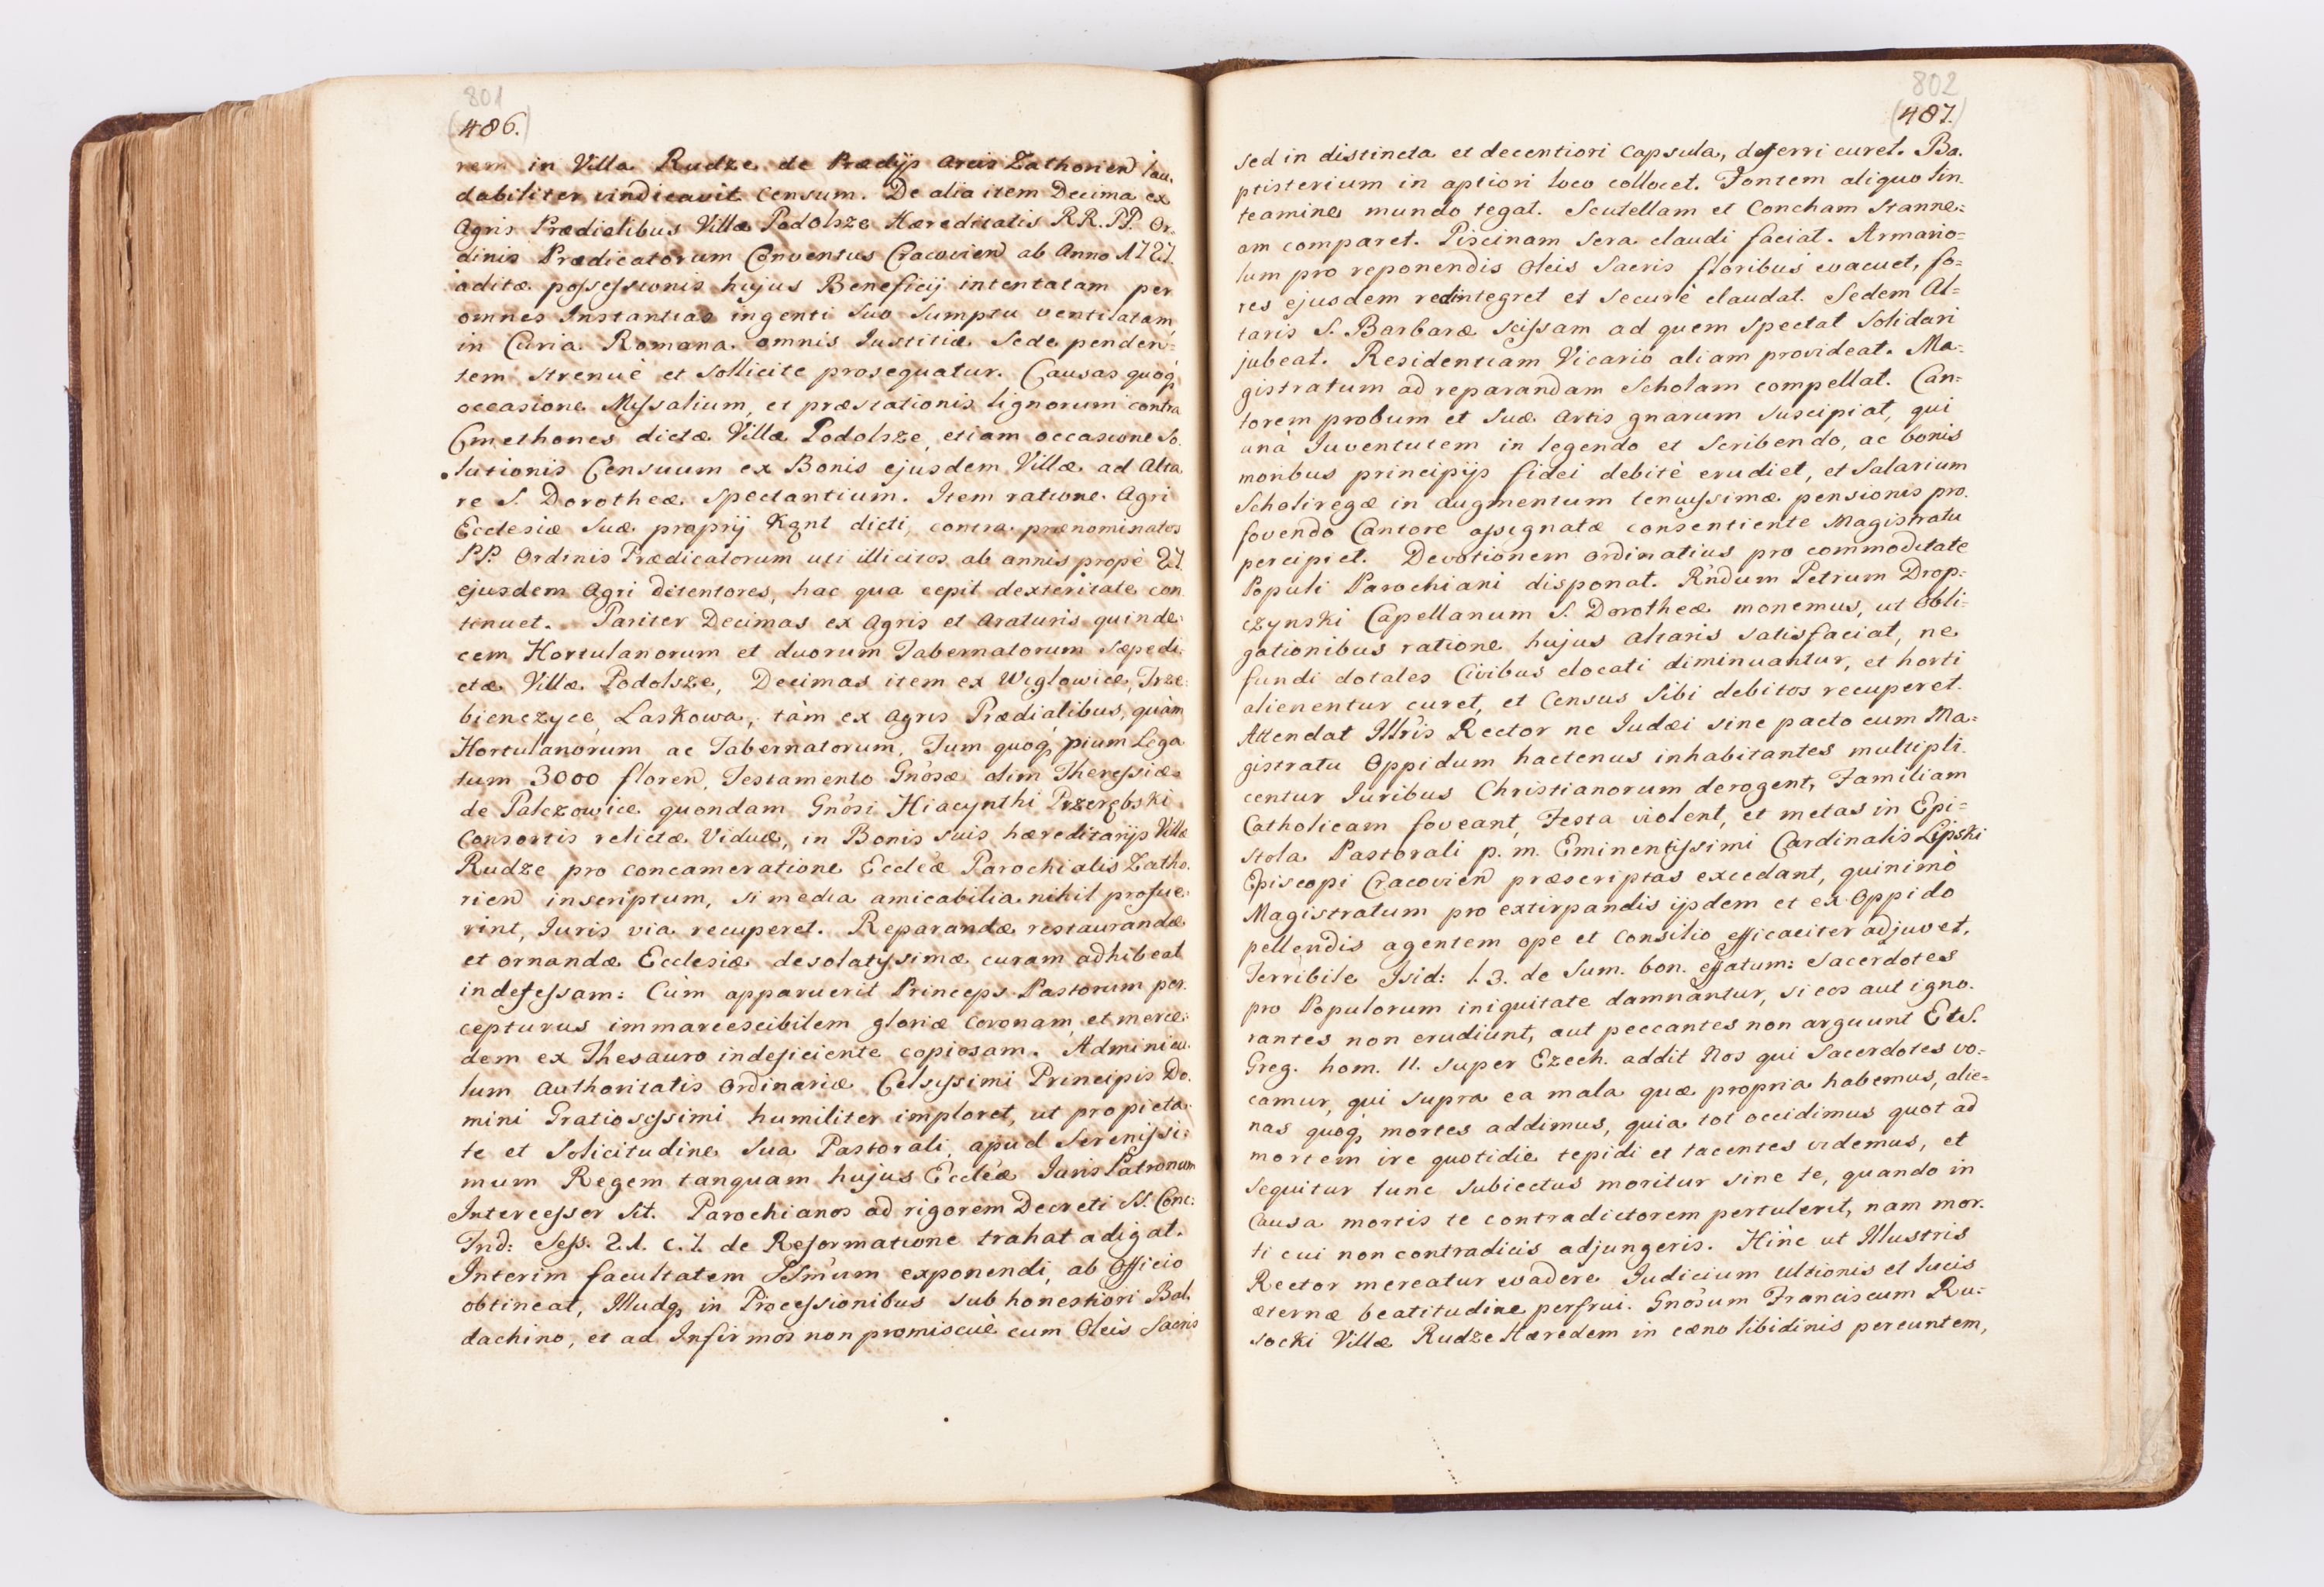 801
(486.)
rem in Villa Rudze de Prædijs Arcis Zathorien lau,
dabiliter vindicavit censum. De alia item Decima ex
Agris Prædialibus Villæ Podolsze Hæreditatis RR. PP. Or,
dinis Prædicatorum Conventus Cracovien ab Anno 1727.
aditæ possessionis hujus Beneficij intentatam per
omnes Instantias ingenti suo sumptu ventilatam
in Curia Romana omnis Iustitiæ Sede penden=
tem strenuè et sollicite prosequatur. Causas quoq,
occasione Missalium, et præstationis lignorum contra
Cmethones dictæ Villæ Podolsze, etiam occasione So,
lutionis Censuum ex Bonis ejusdem Villæ ad Alta,
re S. Dorotheæ spectantium. Item ratione Agri
Ecclesiæ suæ proprij Kąnt dicti, contra prænominatos
PP. Ordinis Prædicatorum uti illicitos ab annis propè 27.
ejusdem Agri detentores, hac qua cepit dexteritate con
tinuet. Pariter Decimas ex Agris et Araturis quinde,
cem Hortulanorum et duorum Tabernatorum sæpedi,
ctæ Villæ Podolsze, Decimas item ex Wiglowice, Trze,
bienczyce, Laskowa, tàm ex Agris Prædialibus, quàm
Hortulanorum ac Tabernatorum. Tum quoq, pium Lega
tum 3000 floren, Testamento Gnosæ olim Theressiæ
de Palczowice quondam Gnosi Hiacynthi Przerębski
Consortis relictæ Viduæ, in Bonis suis hæreditarijs Villæ
Rudze pro concameratione Eccleæ Parochialis Zatho,
rien inscriptum, si media amicabilia nihil profue,
rint, Iuris via recuperet. Reparandæ restaurandæ
et ornandæ Ecclesiæ desolatissimæ curam adhibeat
indefessam: Cum apparuerit Princeps Pastorum per,
cepturus immarcescibilem gloriæ coronam, et merce,
dem ex Thesauro indeficiente copiosam. Adminicu,
lum Authoritatis Ordinariæ Celsissimi Principis Do,
mini Gratiosissimi humiliter imploret, ut pro pieta,
te et Solicitudine sua Pastorali, apud Serenissi,
mum Regem tanquam hujus Eccleæ Iuris Patronum
Intercessor sit. Parochianos ad rigorem Decreti SS. Conc:
Trid: Sess. 21. c. 7. de Reformatione trahat adigat.
Interim facultatem SSmum exponendi, ab Officio
obtineat, Illudq, in Processionibus sub honestiori Bal,
dachino, et ad Infirmos non promiscuè cum Oleis Sacris
802
(487.)
sed in distincta et decentiori capsula, deferri curet. Ba,
ptisterium in aptiori loco collocet. Fontem aliquo lin,
teamine mundo tegat. Scutellam et Concham stanne=
am comparet. Piscinam sera claudi faciat. Armario=
lum pro reponendis Oleis Sacris floribus evacuet, fo=
res ejusdem redintegret et securè claudat. Sedem Al=
taris S. Barbaræ scissam ad quem spectat solidari
jubeat. Residentiam Vicario aliam provideat. Ma=
gistratum ad reparandam Scholam compellat. Can=
torem probum et suæ Artis gnarum suscipiat, qui
unà Iuventutem in legendo et scribendo, ac bonis
moribus principijs fidei debitè erudiet, et Salarium
Scholiregæ in augmentum tenuissimæ pensionis pro
fovendo Cantore assignatæ consentiente Magistratu
percipiet. Devotionem ordinatius pro commoditate
Populi Parochiani disponat. Rndum Petrum Drop=
czynski Capellanum S. Dorotheæ monemus, ut Obli=
gationibus ratione hujus Altaris satisfaciat, ne
fundi dotales Civibus elocati diminuantur, et horti
alienentur curet, et Census sibi debitos recuperet.
Attendat Illris Rector ne Iudæi sine pacto cum Ma=
gistratu Oppidum hactenus inhabitantes multipli,
centur Iuribus Christianorum derogent, Familiam
Catholicam foveant, Festa violent, et metas in Epi=
stola Pastorali p. m. Eminentissimi Cardinalis Lipski
Episcopi Cracovien præscriptas excedant, quinimò
Magistratum pro extirpandis ijsdem et ex Oppido
pellendis agentem ope et consilio efficaciter adjuvet.
Terribile Isid: l. 3. de Sum. bon. effatum: Sacerdotes
pro Populorum iniquitate damnantur, si eos aut igno,
rantes non erudiunt, aut peccantes non arguunt Et S.
Greg. hom. 11. super Ezech. addit Nos qui Sacerdotes vo=
camur, qui supra ea mala quæ propria habemus, alie=
nas quoq, mortes addimus, quia tot occidimus quot ad
mortem ire quotidie tepidi et tacentes videmus, et
sequitur tunc subiectus moritur sine te, quando in
causa mortis te contradictorem pertulerit, nam mor,
ti cui non contradicis adjungeris. Hinc ut Illustris
Rector mereatur evadere Iudicium Ultionis et lucis
æternæ beatitudine perfrui. Gnosum Franciscum Ru=
socki Villæ Rudze Hæredem in cæno libidinis pereuntem,